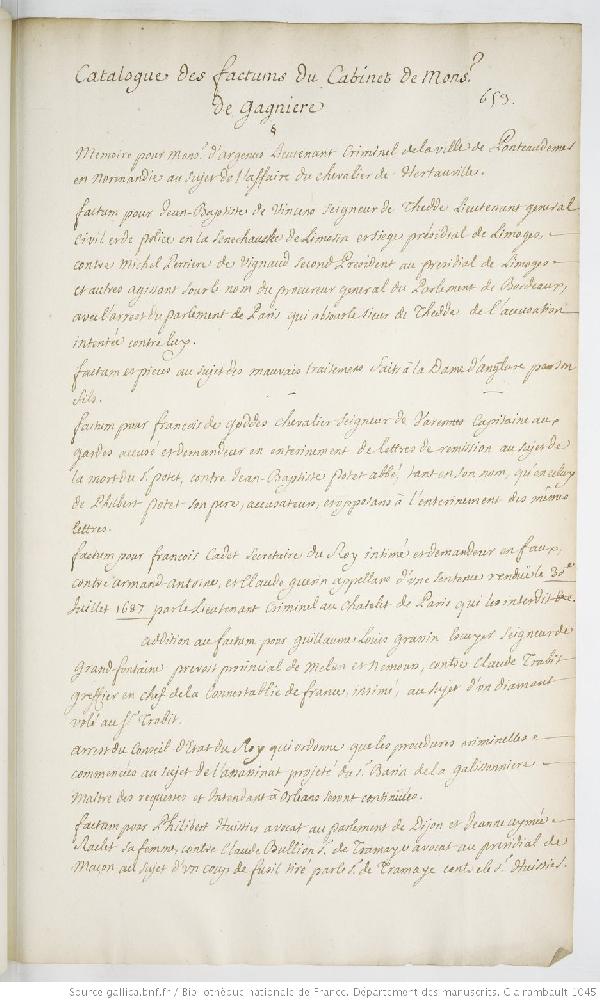 Catalogue des factums du Cabinet de Mons.r
de Gagniere
653.
Memoire pour Mons.r d'argenus Lieutenant Criminel de la ville de Ponteaudemer
en Normandie au sujet de l'affaire du chevalier de Hertauville.
factum pour Jean-Baptiste de Vincens Seigneur de Thedde Lieutenant general
Civil et de police en la Senechaussée de Limosin et siege présidial de Limoges,
contre Michel Perriere de Vignaud second President au presidial de Limoges
et autres agissant sous le nom du procureur general du Parlement de Bordeaux,
avec l'arrest du parlement de Paris qui absout le sieur de Thedde de l'accusation
intentée contre luy.
factum et pieces au sujet des mauvais traitemens faits à la Dame d'anglure par son
fils.
factum pour françois de goddes chevalier seigneur de Varennes Capitaine aux
gardes accusé et demandeur en enterinement de lettres de remission au sujet de
la mort du s.r potet, contre Jean-Baptiste potet abbé, tant en son nom, qu'en celuy
de Philbert potet son pere, accusateur, et opposans à l'enterinement des mêmes
lettres.
factum pour francois Cadet Secretaire du Roy intimé et demandeur en faux,
contre armand-antoine, et Claude guerin appellans d'une sentence rendüe le 30.e
Juillet 1687 par le Lieutenant Criminel au Chatelet de Paris qui les interdit &c.
addition au factum pour guillaume Louis gravin Escuyer Seigneur de
grandfontaine prevost provincial de Melun et Nemours, contre Claude Trobit
greffier en chef de la Connestablie de france, intimé, au sujet d'un diamant
volé au s.r Trobit.
arrest du Conseil d'Etat du Roy qui ordonne que les procedures criminelles
commencées au sujet de l'assassinat projeté du s.r Barin de la galissonniere
Maitre des requestes et Intendant à Orleans seront continuées.
factum pour Philibert Huissier avocat au parlement de Dijon et Jeanne aymée
Raclet sa femme, contre Claude Bullion s.r de Tramaye avocat au presidial de
Macon au sujet d'un coup de fusil tiré par le s.r de Tramaye contre le s.r Huissier.
Source gallica.bnf.fr / Bibliothèque nationale de France. Département des manuscrits. Clairambault 1045